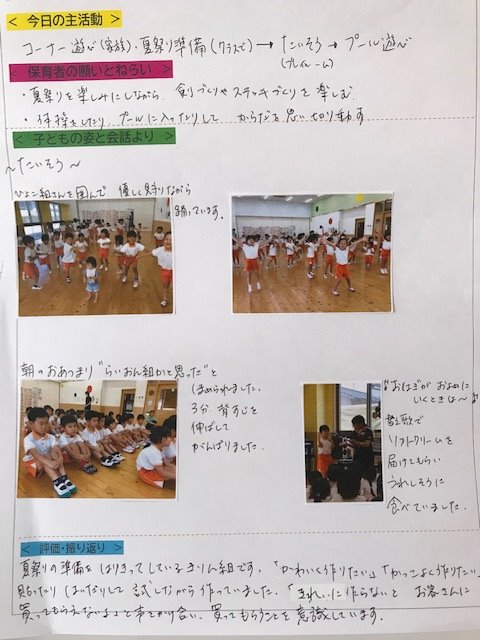 < 今日の主活動 >
コーナー遊び(家族)・夏祭り準備(クラスで)→たいそう→プール遊び
(プレイルーム)
< 保育者の願いとねらい >
・夏祭りを楽しみにしながら、飾りづくりやステッキづくりを楽しむ
・体操をしたり、プールに入ったりして からだを思い切り動かす
< 子どもの姿と会話より >
～たいそう～
ひよこ組さんを囲んで 優しく見守りながら
踊っています。
朝のおあつまり"らいおん組かと思った"と
ほめられました。
3分、背すじを
伸ばして
がんばりました。
♪おはぎがおよめに
いくときは～♪
替え歌で
ソフトクリームを
届けてもらい
うれしそうに
食べていました。
< 評価・振り返り >
夏祭りの準備をはりきってしているきりん組です。「かわいく作りたい」「かっこよく作りたい」
貼ったりはがしたりして試しながら作っていました。「きれいに作らないと お客さんに
買ってもらえないよ」と声をかけ合い、買ってもらうことを意識しています。